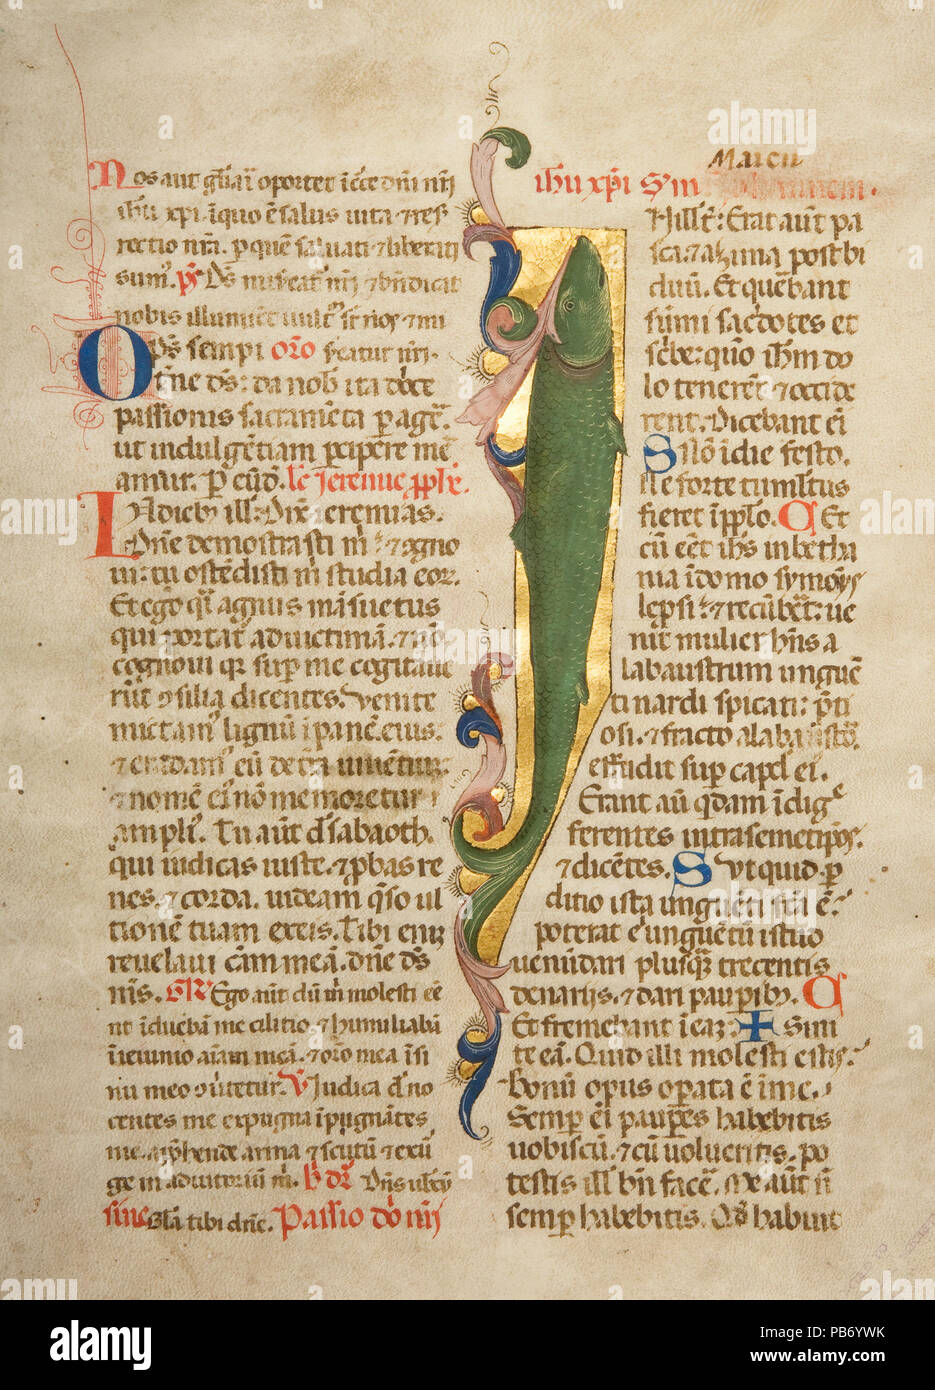 Nos aut gliaȓ oportet ı̄ cce dñi nr̄i
ihu xpı. ı̄quo ē salus uita ⁊ res
rectio nr̄a. p quē saluati ⁊ liberati
sum⁹. p̄s Ds̄ misereat̄ nr̄i ⁊ bn̄dicat
nobis illumīet uult̄
O p̄s sempı orō
ne ds̄: da nob̄ ita dn̄ice
passionis sacramēta pagē.
ut indulgētiam pcipere me
amur. p eūd. lc̄ Jeremie pph̄e.
IN dieb̄ ill̄. Dix̄ ieremias.
Dn̄e demōstrasti m̄ ⁊ ɔgno
ui: tu ostēdisti m̄ studia eoꝝ.
Et ego q̄ı agnus māsuetus
qui portat̄ ad uictimā. ⁊ nō
cognoui qꝛ sup me cogitaue
rūt ɔsilia dicentes. Venite
mictam⁹ lignū ı̄ panē eius.
⁊ eradam⁹ eū de t̄ra uiuētiū.
⁊ nomē ei nō memoretur
ampli⁹. Tu aūt dn̄e sabaoth.
qui iudicas iuste. ⁊ pbas re
nes. ⁊ corda. uideam q̄so ul
tionē tuam ex eis. Tibi eni3
reuelaui cām meā. dn̄e ds̄
m̄s. GR̄ Ego aūt dū m̄ molesti eē
nt ı̄duebā me cilitio. ⁊ humiliabā
ı̄ ieiunio aı̄am meā. ⁊ orō mea ı̄ si
nu meo ɔuertetur. V̄ Judica dn̄e no
centes me expugna ı̄pugnātes
me. apphende arma ⁊ scutū ⁊ exū
ge in adiutoriū m̄.
sine Glā tibi dn̄e. Passio dōnı̄
Marcū
ihu xpı Sm̄
N ill̄ t̄: Erat aūt pa
sca ⁊ açima post bi
duū. Et quēbant
sūmi sac̄dotes et
sc̄be: quō ihm do
lo tenerēt ⁊ occide
rent. Dicebant eı̄
S Nō ı̄ die festo.
Ne forte tumult⁹
fieret ı̄ pplo. C Et
cū eēt ihs̄ in betha
nia ı̄ domo symōis
lepsi ⁊ recūbēt: ue
nit mulier hn̄s a
labaustrum unguē
ti nardi spicati: p̄ti
osi. ⁊ fracto alabastō.
effudit sup capd̄ eı̄.
Erant aū q̄dam ı̄dig̃
ferentes intra semetip̄os.
⁊ dicētes. S Vt quid p
ditio ista unguēti fc̄a ē?
poterat e͛ unguētū istuo
uenūdari plusq̄ trecentis
denariis. ⁊ dari paupib⁹. C
Et fremebant ı̄ eaz ✝ Sini
te eā. Quid illi molesti estis?
Bonū opus opata ē ı̄ me.
Semp eı̄ paupes habebitis
uobiscū. ⁊ cū uolueritis. po
testis ill̄ bn̄ facē. Me aūt n̄
semp habebitis. Qd̄ habuit